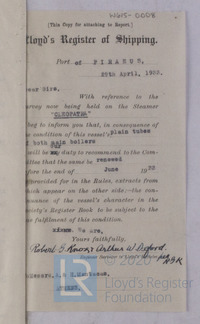 W615-0008
[This Copy for attaching to Report.]
Lloyd's Register of Shipping.
Port of PIRAEUS,
25th April, 1922.
Dear Sirs,
With reference to the
survey now being held on the Steamer
"CLEOPATRA"
beg to inform you that, in consequence of
the condition of this vessel's plain tubes
of both main boilers
will be my duty to recommend to the Com-
mittee that the same be renewed
before the end of June 1922
provided for in the Rules, extracts from
which appear on the other side:—the con-
tinuance of the vessel's character in the
Society's Register Book to be subject to the
fulfilment of this condition.
We Are,
Yours faithfully,
Robert G. Knox & Arthur W. Oxford
Surveyors to Lloyd's Register
Messrs.
© 2020
LR
Lloyd's Register
Foundation